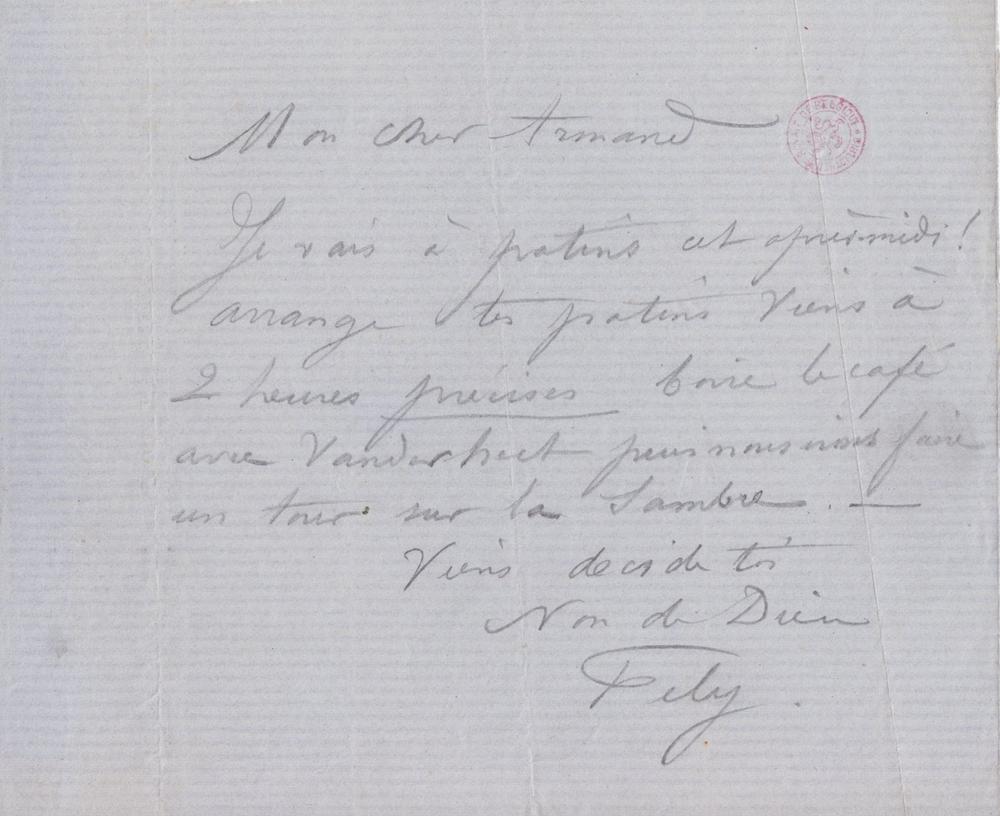 Mon cher Armand
Je vais à patins cet après midi!
arrange tes patins Viens à
2 heures précises boire le café
avec Vanderhecht puis nous irons faire
un tour sur la Sambre. —
Viens decide toi
Non de Dieu
Fély.